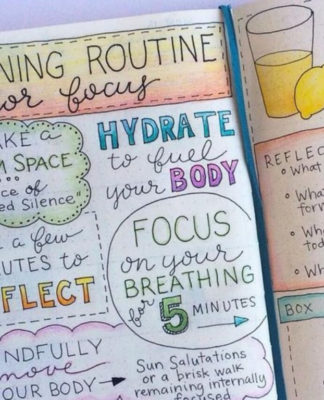 NING ROUTINE
or focus
AKE a
M SPACE
ce of
ed Silence"
HYDRATE
to fuel
your BODY
a few
UTES to
FLECT
FOCUS
on your
BREATHING
for 5 MINUTES
NDFULLY
move
OUR BODY
Sun Salutations
or a brisk walk
remaining internally
focused
REFLEC
• What
• Wha
forw
• Who
toda
• Wh
BOX